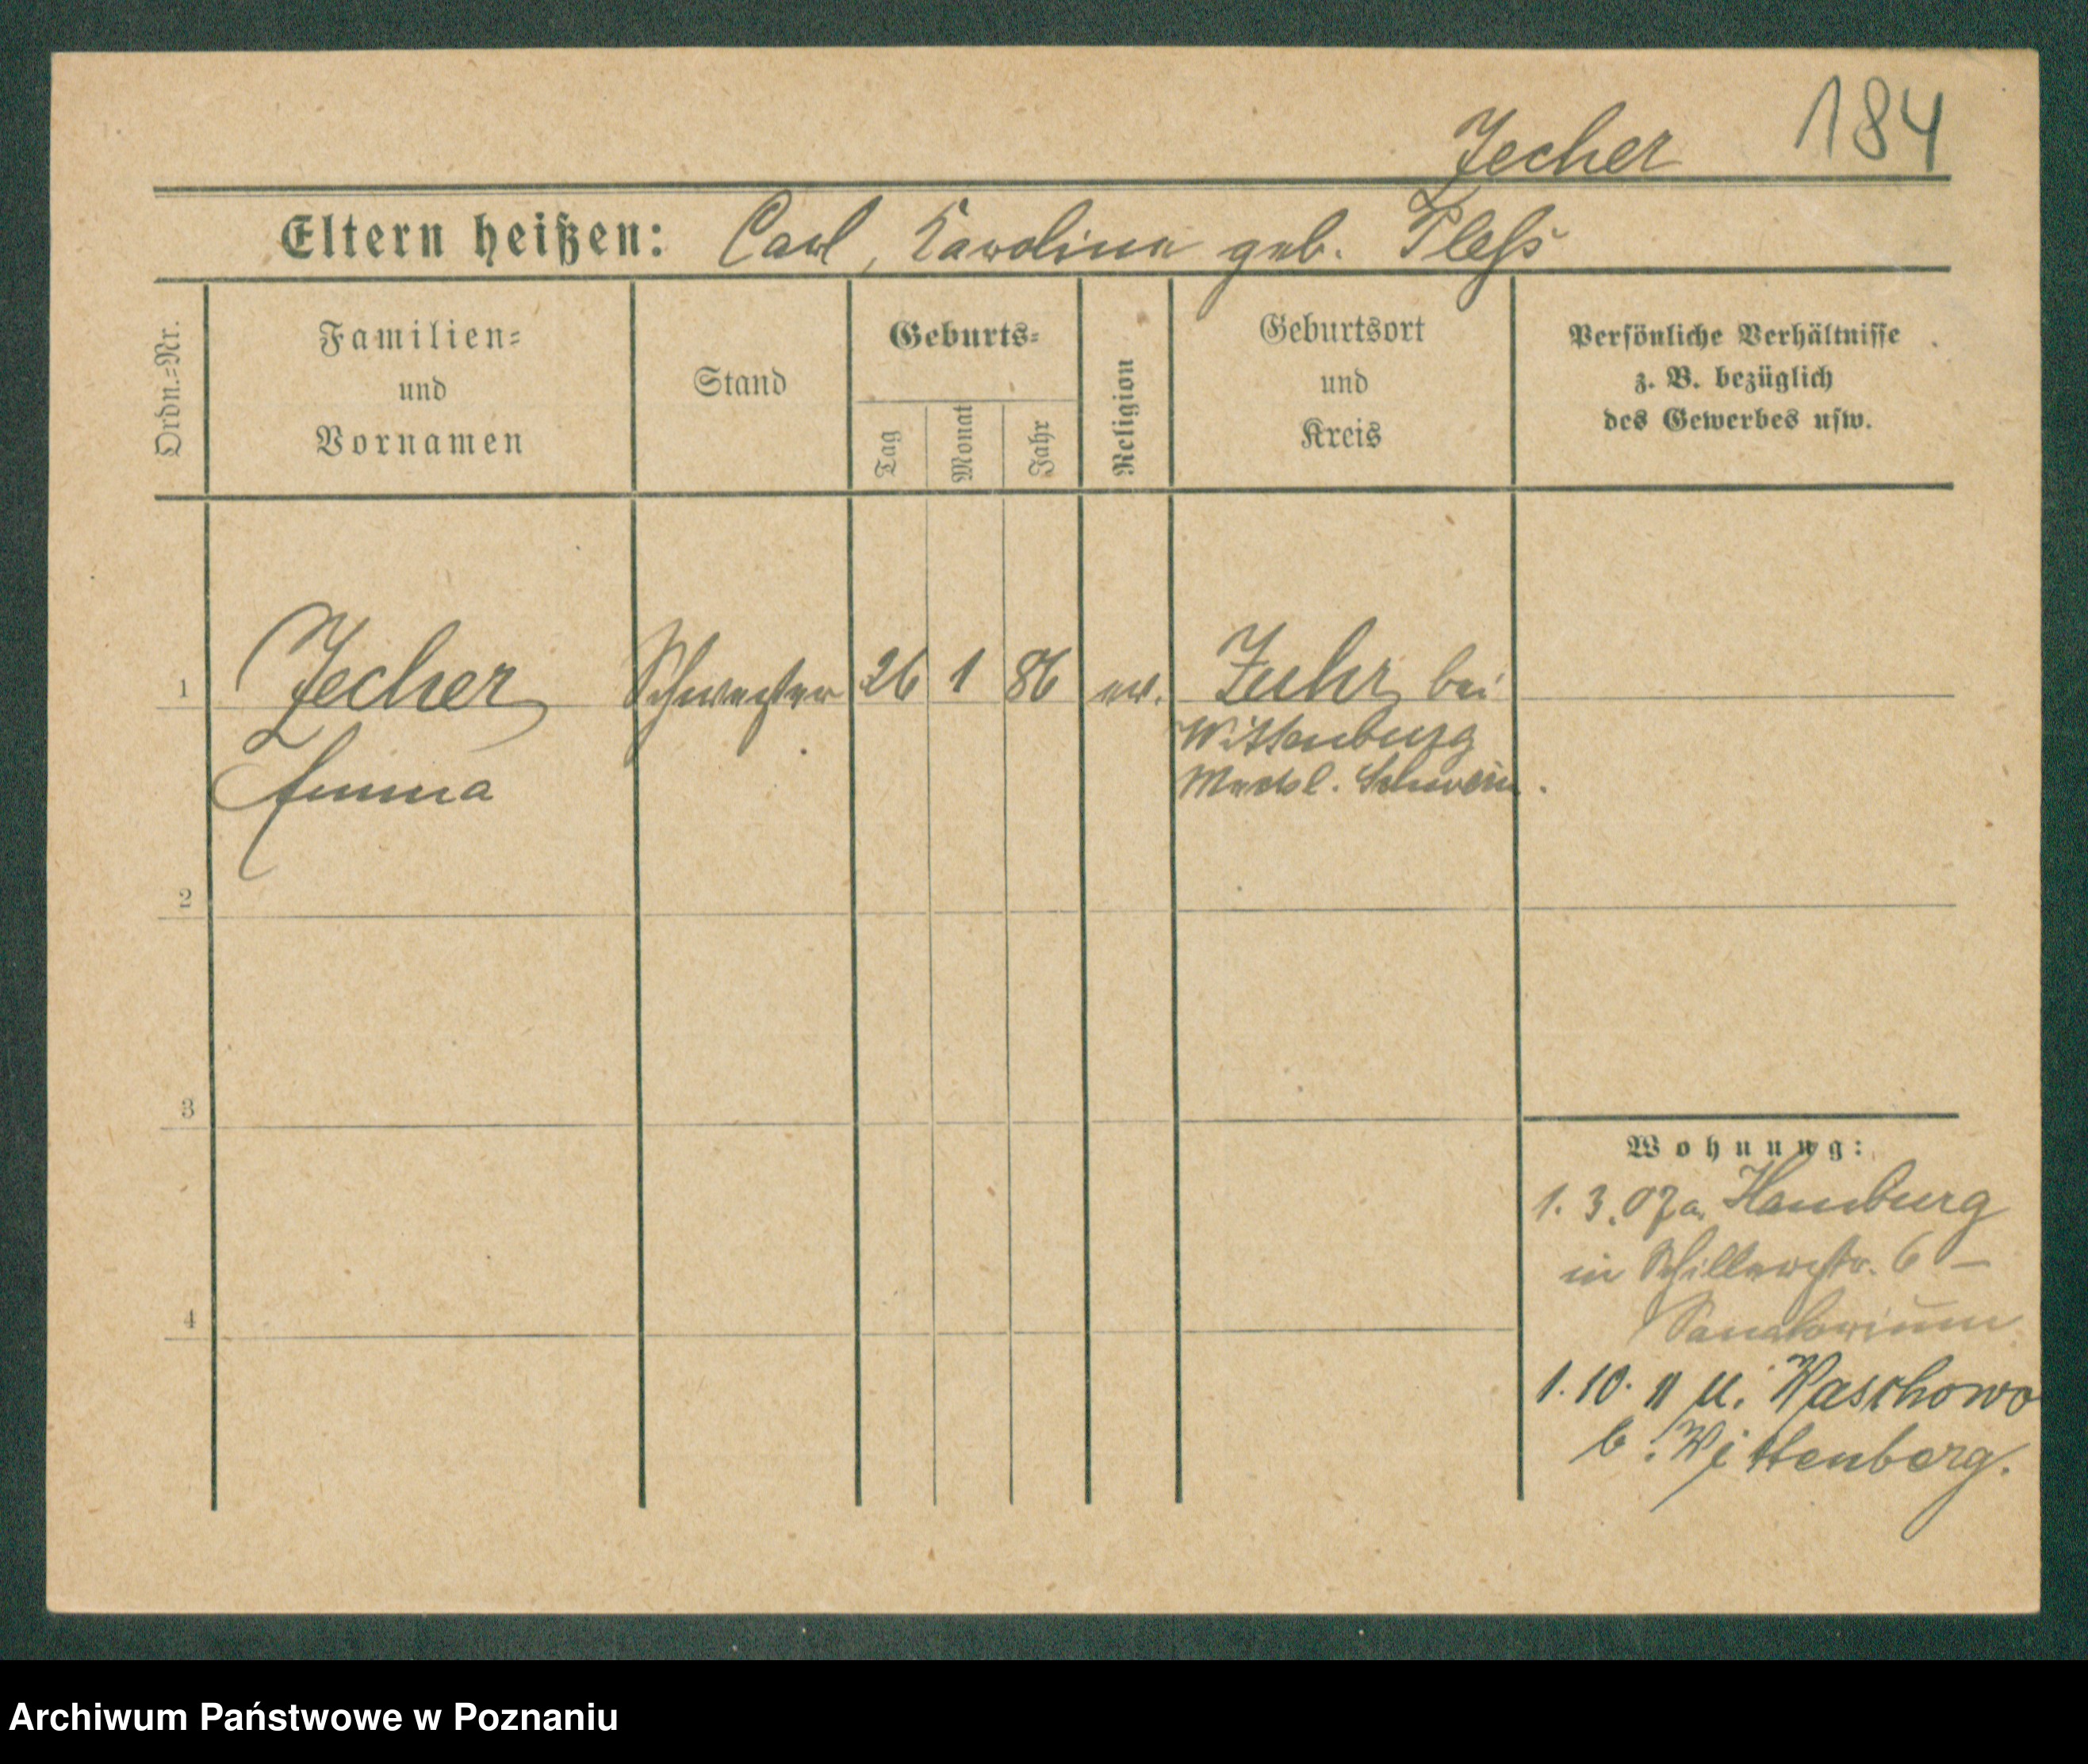 Jecher 184
Eltern heißen: Carl, Karolina geb. Pleß
Ordn.=Nr.
Familien=
und
Vornamen
Stand
Geburts=
Tag
Monat
Jahr
Religion
Geburtsort
und
Kreis
Persönliche Verhältnisse
z. B. bezüglich
des Gewerbes usw.
1 Jecher Schwester 26 1 86 ev. Zuhr bei
Wittenburg
Emma
Meckl. Schwerin.
2
3
4
Wohnung:
1.3.07 a. Hamburg
in Schillerstr. 6 –
Sanatorium
1.10.11 u. Waschowo
b. Wittenberg.
Archiwum Państwowe w Poznaniu